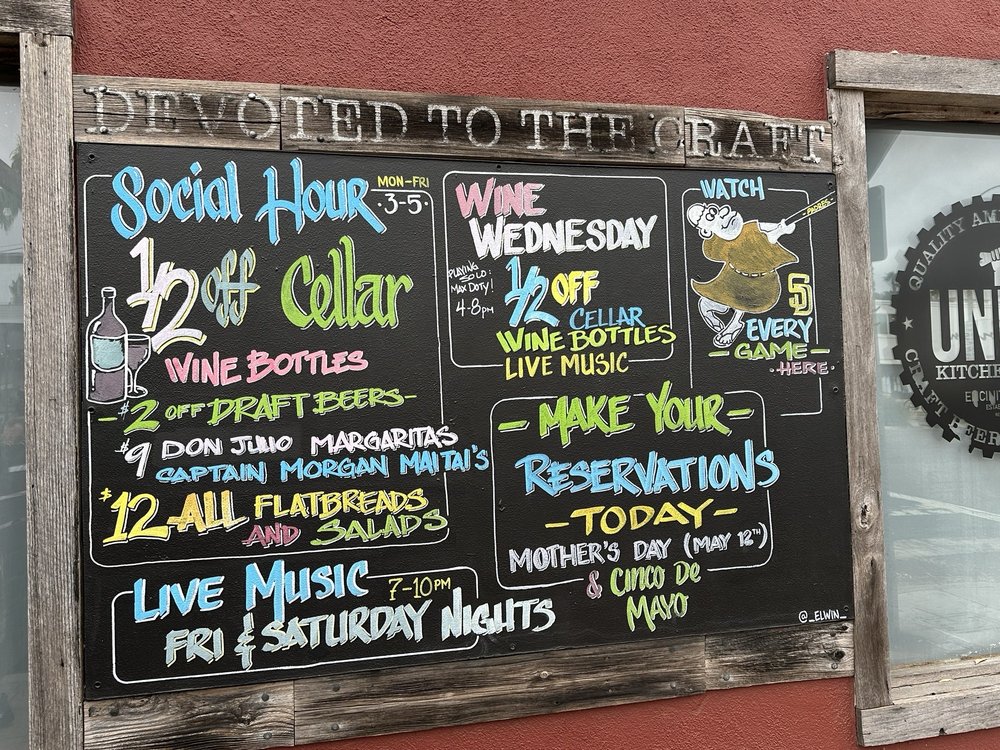 DEVOTED TO THE CRAFT
Social Hour
MON-FRI
·3-5·
1/2 off Cellar
WINE BOTTLES
-$2 OFF DRAFT BEERS-
$9 DON JULIO MARGARITAS
CAPTAIN MORGAN MAI TAI'S
$12 ALL FLATBREADS
AND SALADS
LIVE MUSIC 7-10PM
FRI & SATURDAY NIGHTS
WINE
WEDNESDAY
PLAYING
SOLO:
MAX DOTY!
4-8PM
1/2 OFF
CELLAR
WINE BOTTLES
LIVE MUSIC
WATCH
-PADRES-
SD
EVERY
-GAME-
·HERE·
-MAKE YOUR-
RESERVATIONS
-TODAY-
MOTHER'S DAY (MAY 12TH)
& CINCO DE
MAYO
@_ELWIN_
QUALITY AM
UN
KITCHE
ENCINI
CRAFT BEER